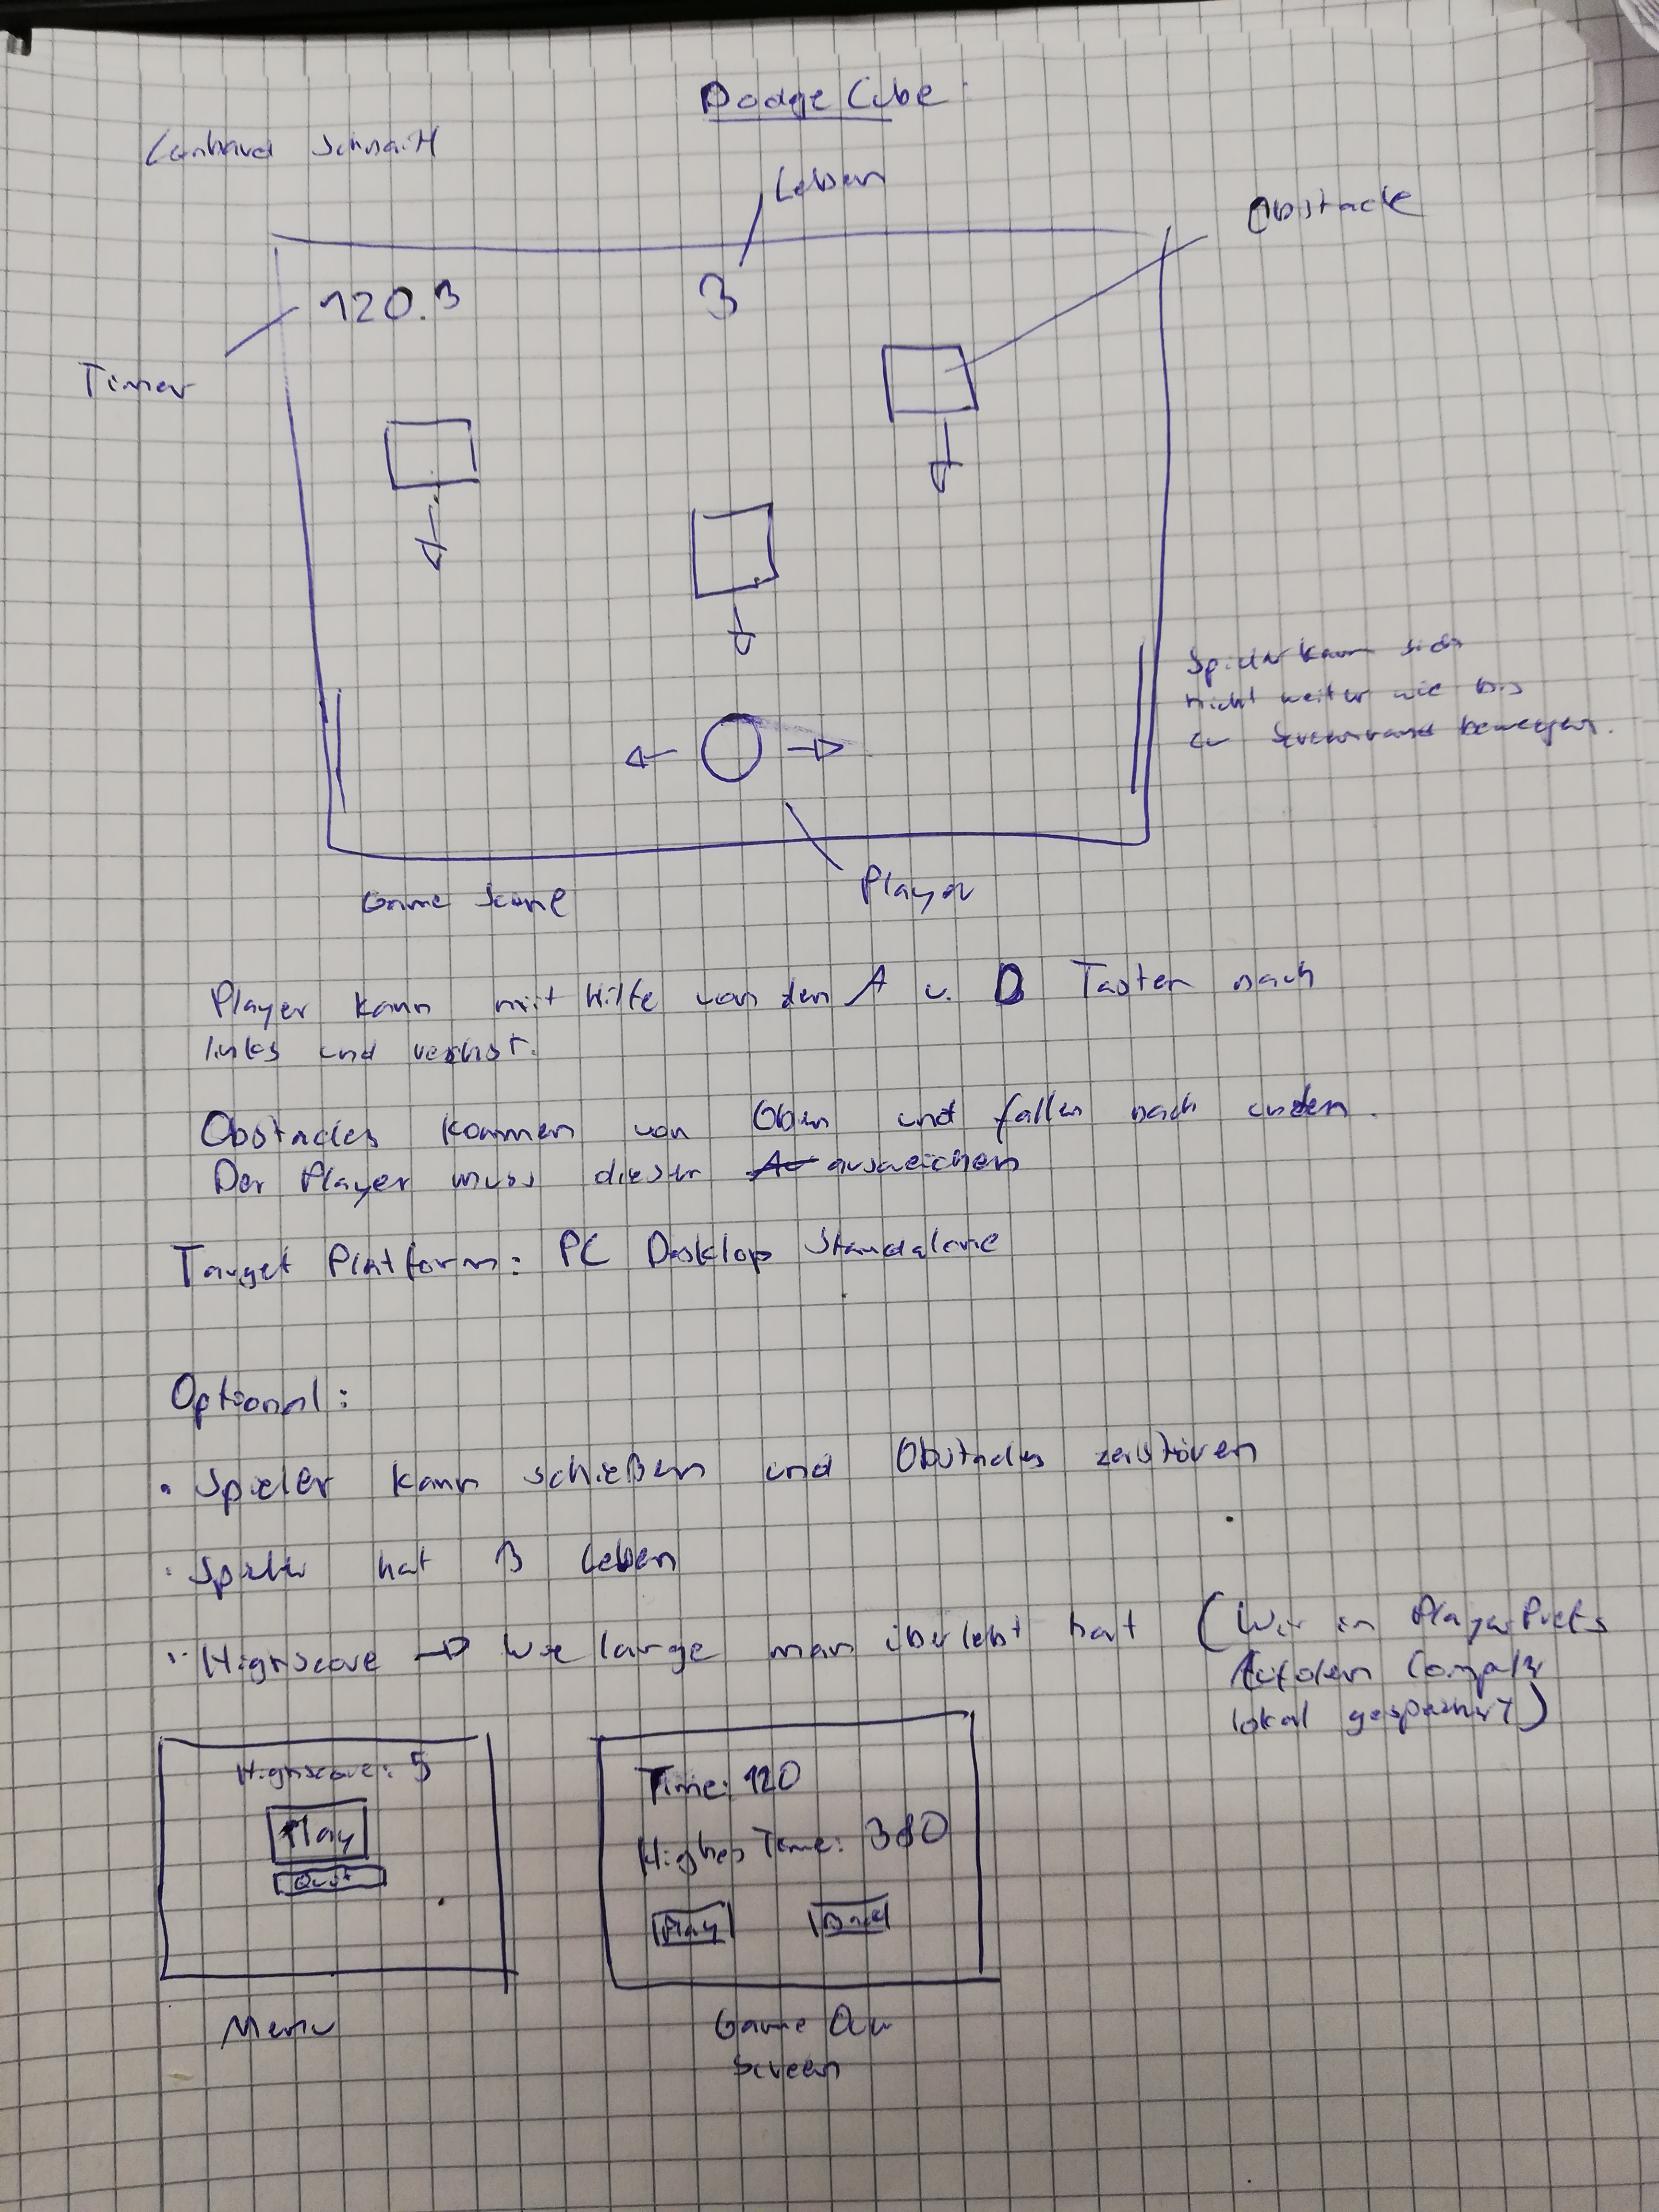 Dodge Cube
Leben
Obstacle
120.3
3
Timer
Spieler kann sich
nicht weiter wie bis
zu bewegen.
Game Scene
Player
Player kann mit Hilfe von den A u. D Tasten nach
links und rechts.
Obstacles kommen von Oben und fallen nach unten.
Der Player muss diesen ausweichen
Target Platform: PC Desktop Standalone
Optional:
• Spieler kann schießen und Obstacles zerstören
• Spieler hat 3 Leben
• Highscore → wie lange man überlebt hat (Wir in PlayerPrefs
Auf dem
lokal gespeichert)
Highscore: 5
Play
Quit
Time: 120
Highes Time: 380
Play
Back
Menu
Game Over
Screen